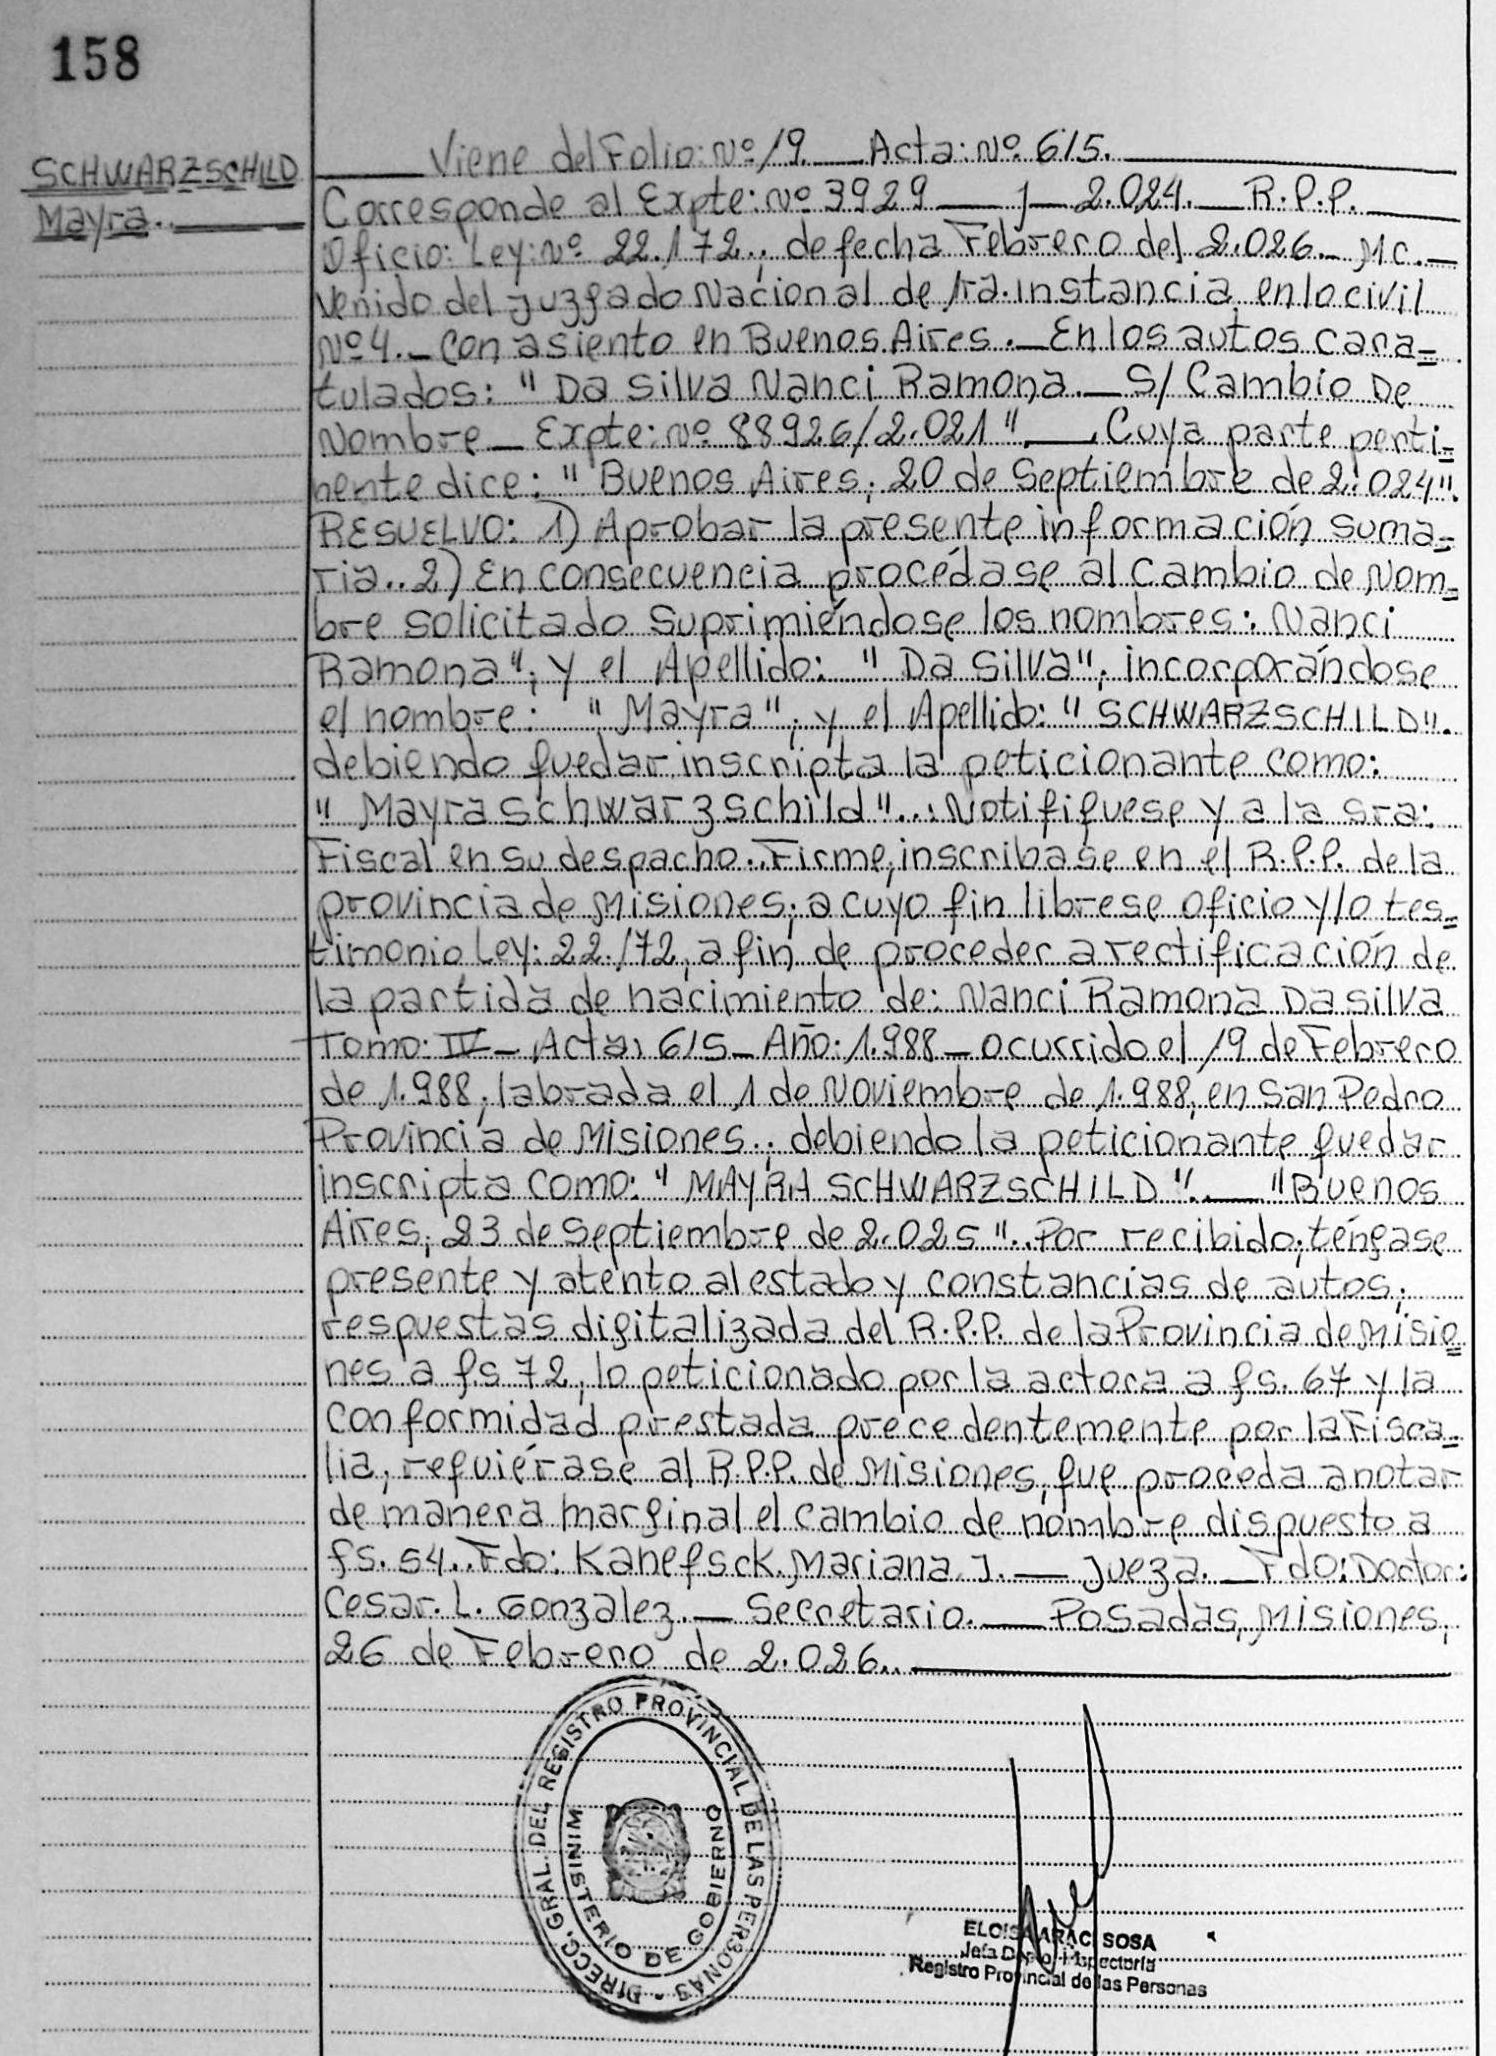 158
SCHWARZSCHILD
Mayra.
Viene del Folio: Nº 19. Acta: Nº 615.
Corresponde al Expte: Nº 3929 — / — 2.024. — R.P.P.
Oficio: Ley: Nº 22.172., de fecha Febrero del 2.026. MC.
Venido del Juzgado Nacional de 1ra. instancia en lo civil
Nº 4. — Con asiento en Buenos Aires. — En los autos cara=
tulados: " Da Silva Nanci Ramona. — S/ Cambio De
Nombre — Expte: Nº 88926/2.021 ". — Cuya parte perti=
nente dice: " Buenos Aires, 20 de Septiembre de 2.024".
RESUELVO: 1) Aprobar la presente información suma=
ria.. 2) En consecuencia procédase al cambio de Nom=
bre solicitado suprimiéndose los nombres: Nanci
Ramona", y el Apellido: " Da Silva", incorporándose
el nombre: " Mayra", y el Apellido: " SCHWARZSCHILD".
debiendo quedar inscripta la peticionante como:
" Mayra Schwarzschild"... Notifiquese y a la sra:
Fiscal en su despacho.. Firme, inscribase en el R.P.P. de la
provincia de Misiones, a cuyo fin librese oficio y/o tes=
timonio Ley: 22.172, a fin de proceder a rectificación de
la partida de nacimiento de: Nanci Ramona Da Silva
Tomo: IV — Acta: 615 — Año: 1.988 — ocurrido el 19 de Febrero
de 1.988, labrada el 1 de Noviembre de 1.988, en San Pedro
Provincia de Misiones.; debiendo la peticionante quedar
inscripta como: " MAYRA SCHWARZSCHILD ". — "Buenos
Aires, 23 de Septiembre de 2.025 ".. Por recibido, téngase
presente y atento al estado y constancias de autos;
respuestas digitalizada del R.P.P. de la Provincia de Misio=
nes a fs 72, lo peticionado por la actora a fs. 67 y la
conformidad prestada precedentemente por la Fisca=
lia, requiérase al R.P.P. de Misiones, que proceda anotar
de manera marginal el cambio de nombre dispuesto a
fs. 54.. Fdo: Kanefsck. Mariana J. — Jueza. — Fdo: Doctor:
Cesar. L. Gonzalez. — Secretario. — Posadas, Misiones,
26 de Febrero de 2.026..
DIRECC. GRAL. DEL REGISTRO PROVINCIAL DE LAS PERSONAS
MINISTERIO DE GOBIERNO
ELOISA ARACI SOSA
Jefa Dpto. Inspectoría
Registro Provincial de las Personas